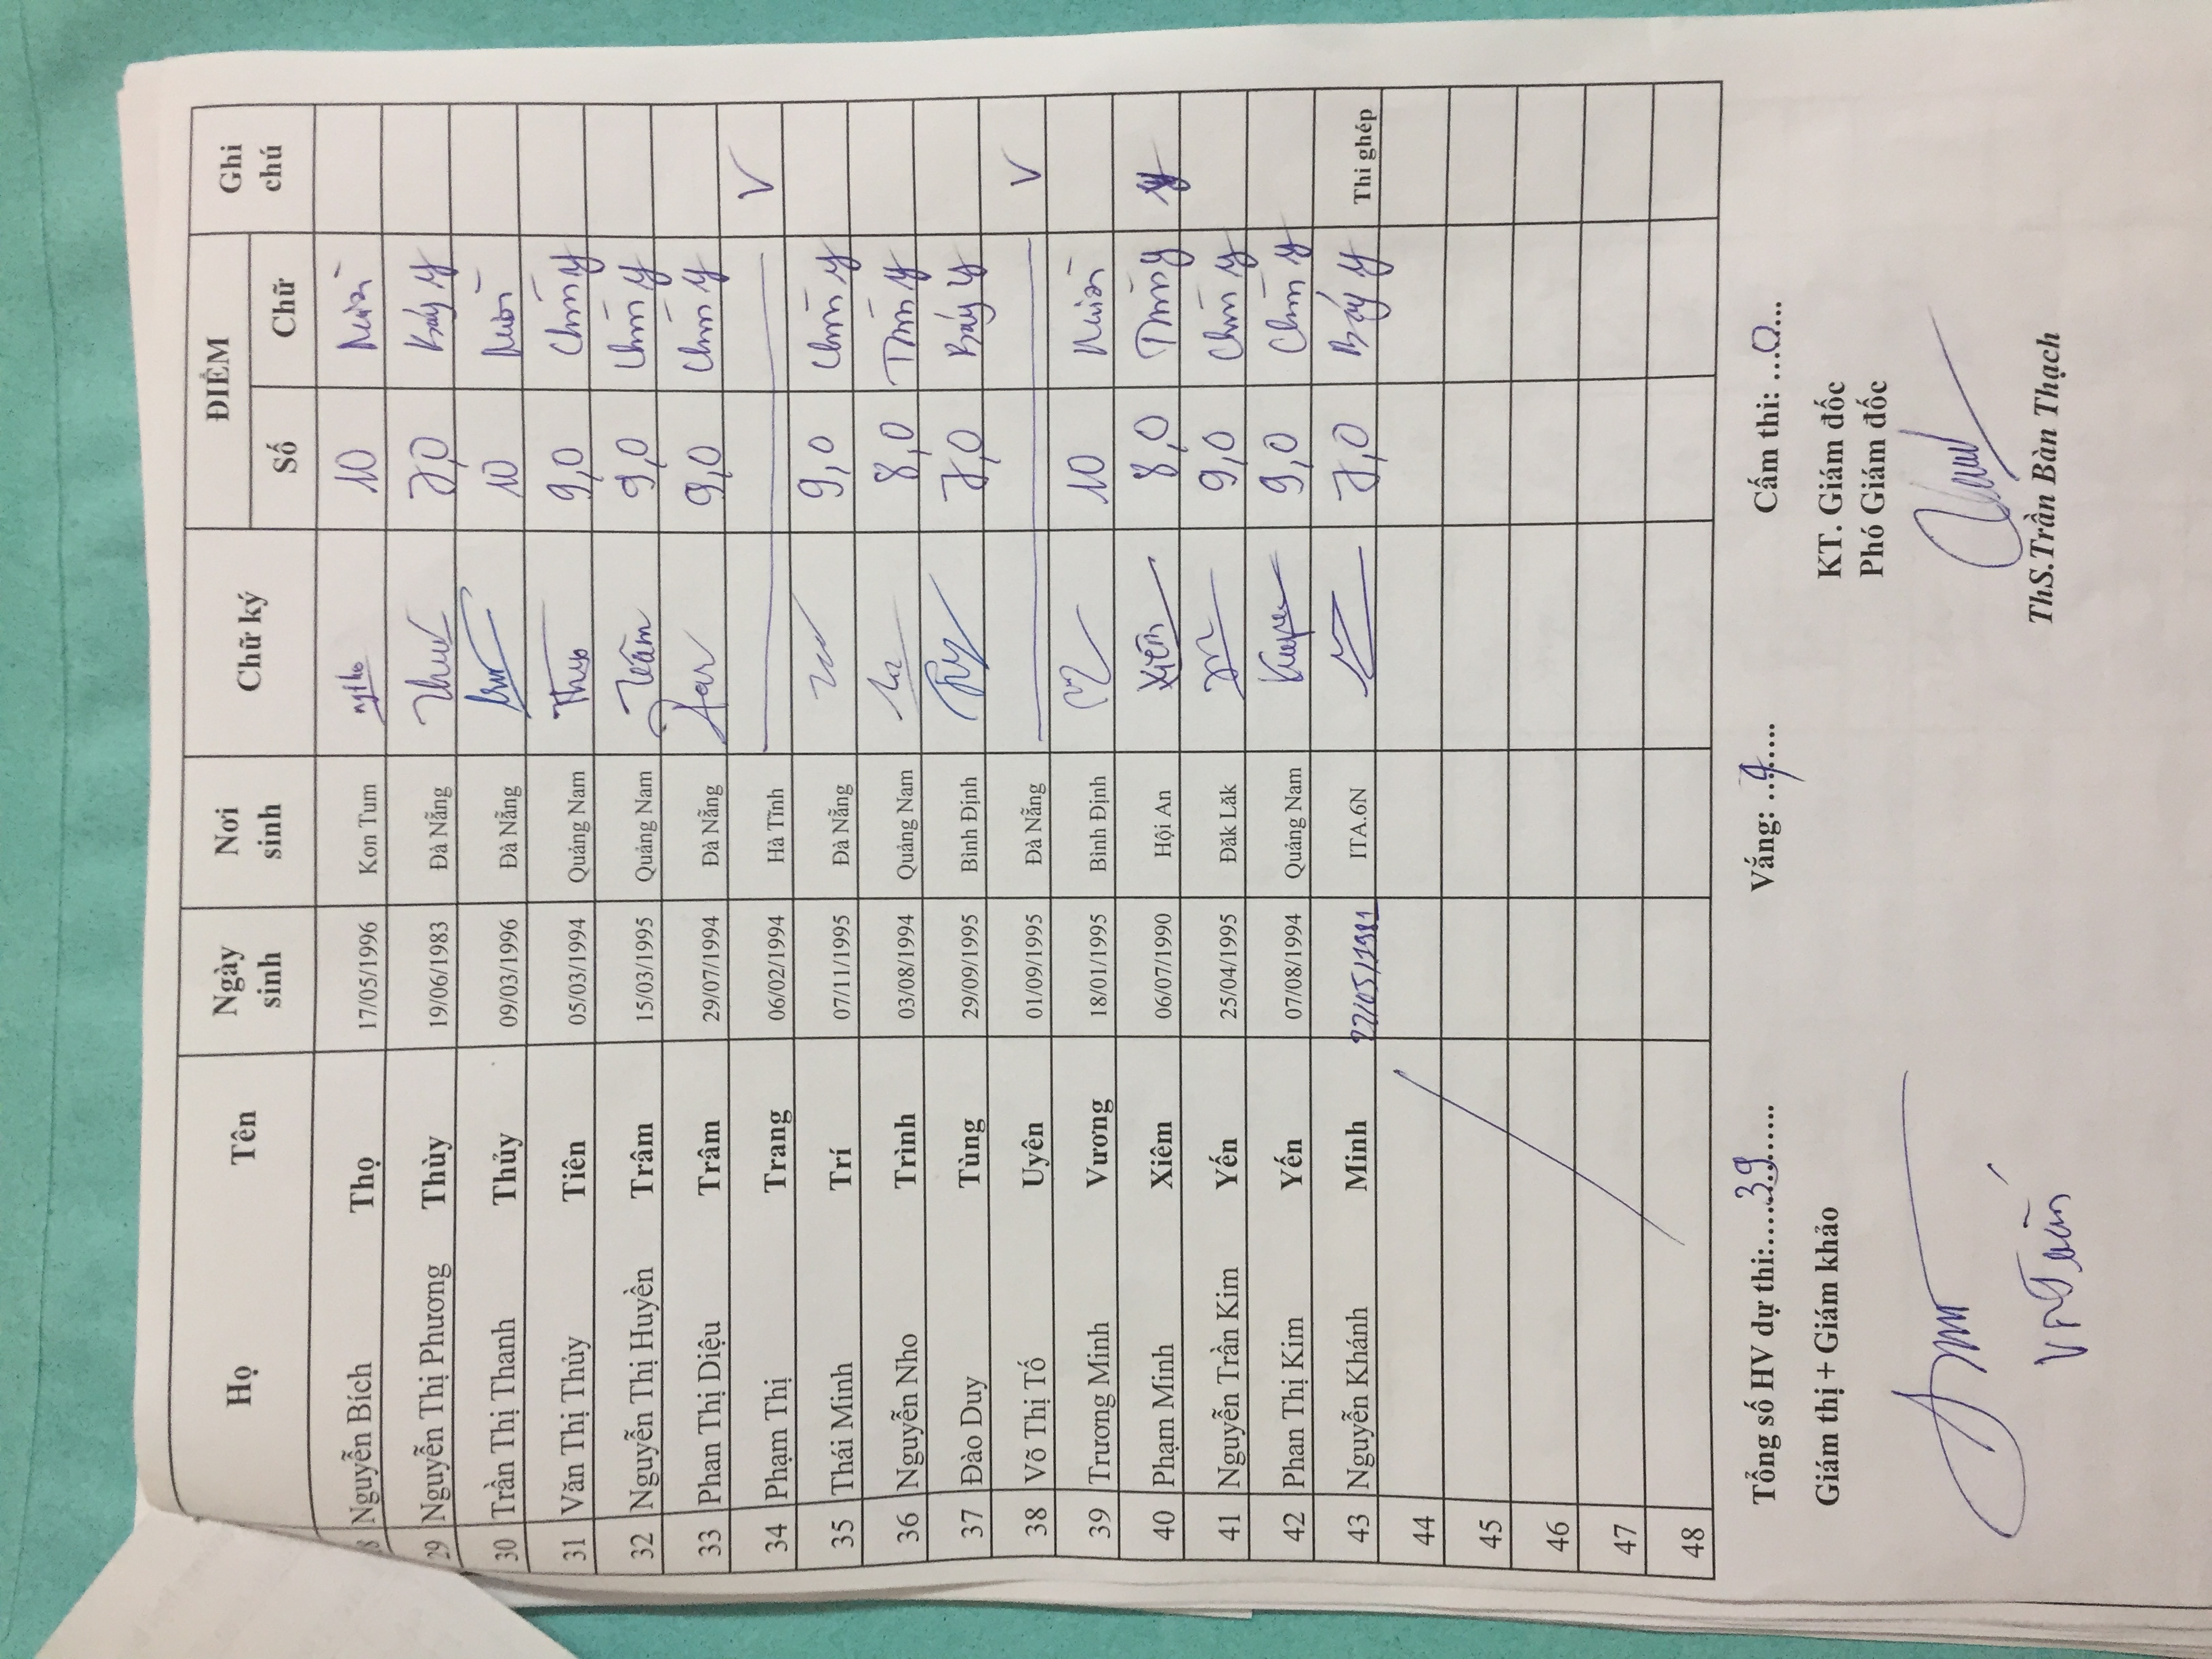 Họ Tên Ngày sinh Nơi sinh Chữ ký ĐIỂM Ghi chú
Số Chữ
Nguyễn Bích Thọ 17/05/1996 Kon Tum 10 Mười
29 Nguyễn Thị Phương Thùy 19/06/1983 Đà Nẵng 7,0 Bảy y
30 Trần Thị Thanh Thủy 09/03/1996 Đà Nẵng 10 Mười
31 Văn Thị Thủy Tiên 05/03/1994 Quảng Nam 9,0 Chín y
32 Nguyễn Thị Huyền Trâm 15/03/1995 Quảng Nam Trâm 9,0 Chín y
33 Phan Thị Diệu Trâm 29/07/1994 Đà Nẵng 9,0 Chín y
34 Phạm Thị Trang 06/02/1994 Hà Tĩnh V
35 Thái Minh Trí 07/11/1995 Đà Nẵng 9,0 Chín y
36 Nguyễn Nho Trình 03/08/1994 Quảng Nam 8,0 Tám y
37 Đào Duy Tùng 29/09/1995 Bình Định 7,0 Bảy y
38 Võ Thị Tố Uyên 01/09/1995 Đà Nẵng V
39 Trương Minh Vương 18/01/1995 Bình Định 10 Mười
40 Phạm Minh Xiêm 06/07/1990 Hội An Xiêm 8,0 Tám y
41 Nguyễn Trần Kim Yến 25/04/1995 Đăk Lăk 9,0 Chín y
42 Phan Thị Kim Yến 07/08/1994 Quảng Nam 9,0 Chín y
43 Nguyễn Khánh Minh 22/05/1991 ITA.6N 7,0 Bảy y Thi ghép
44
45
46
47
48
Tổng số HV dự thi:.....39....... Vắng: ..4..... Cấm thi: ...0...
Giám thị + Giám khảo KT. Giám đốc
Phó Giám đốc
ThS.Trần Bàn Thạch